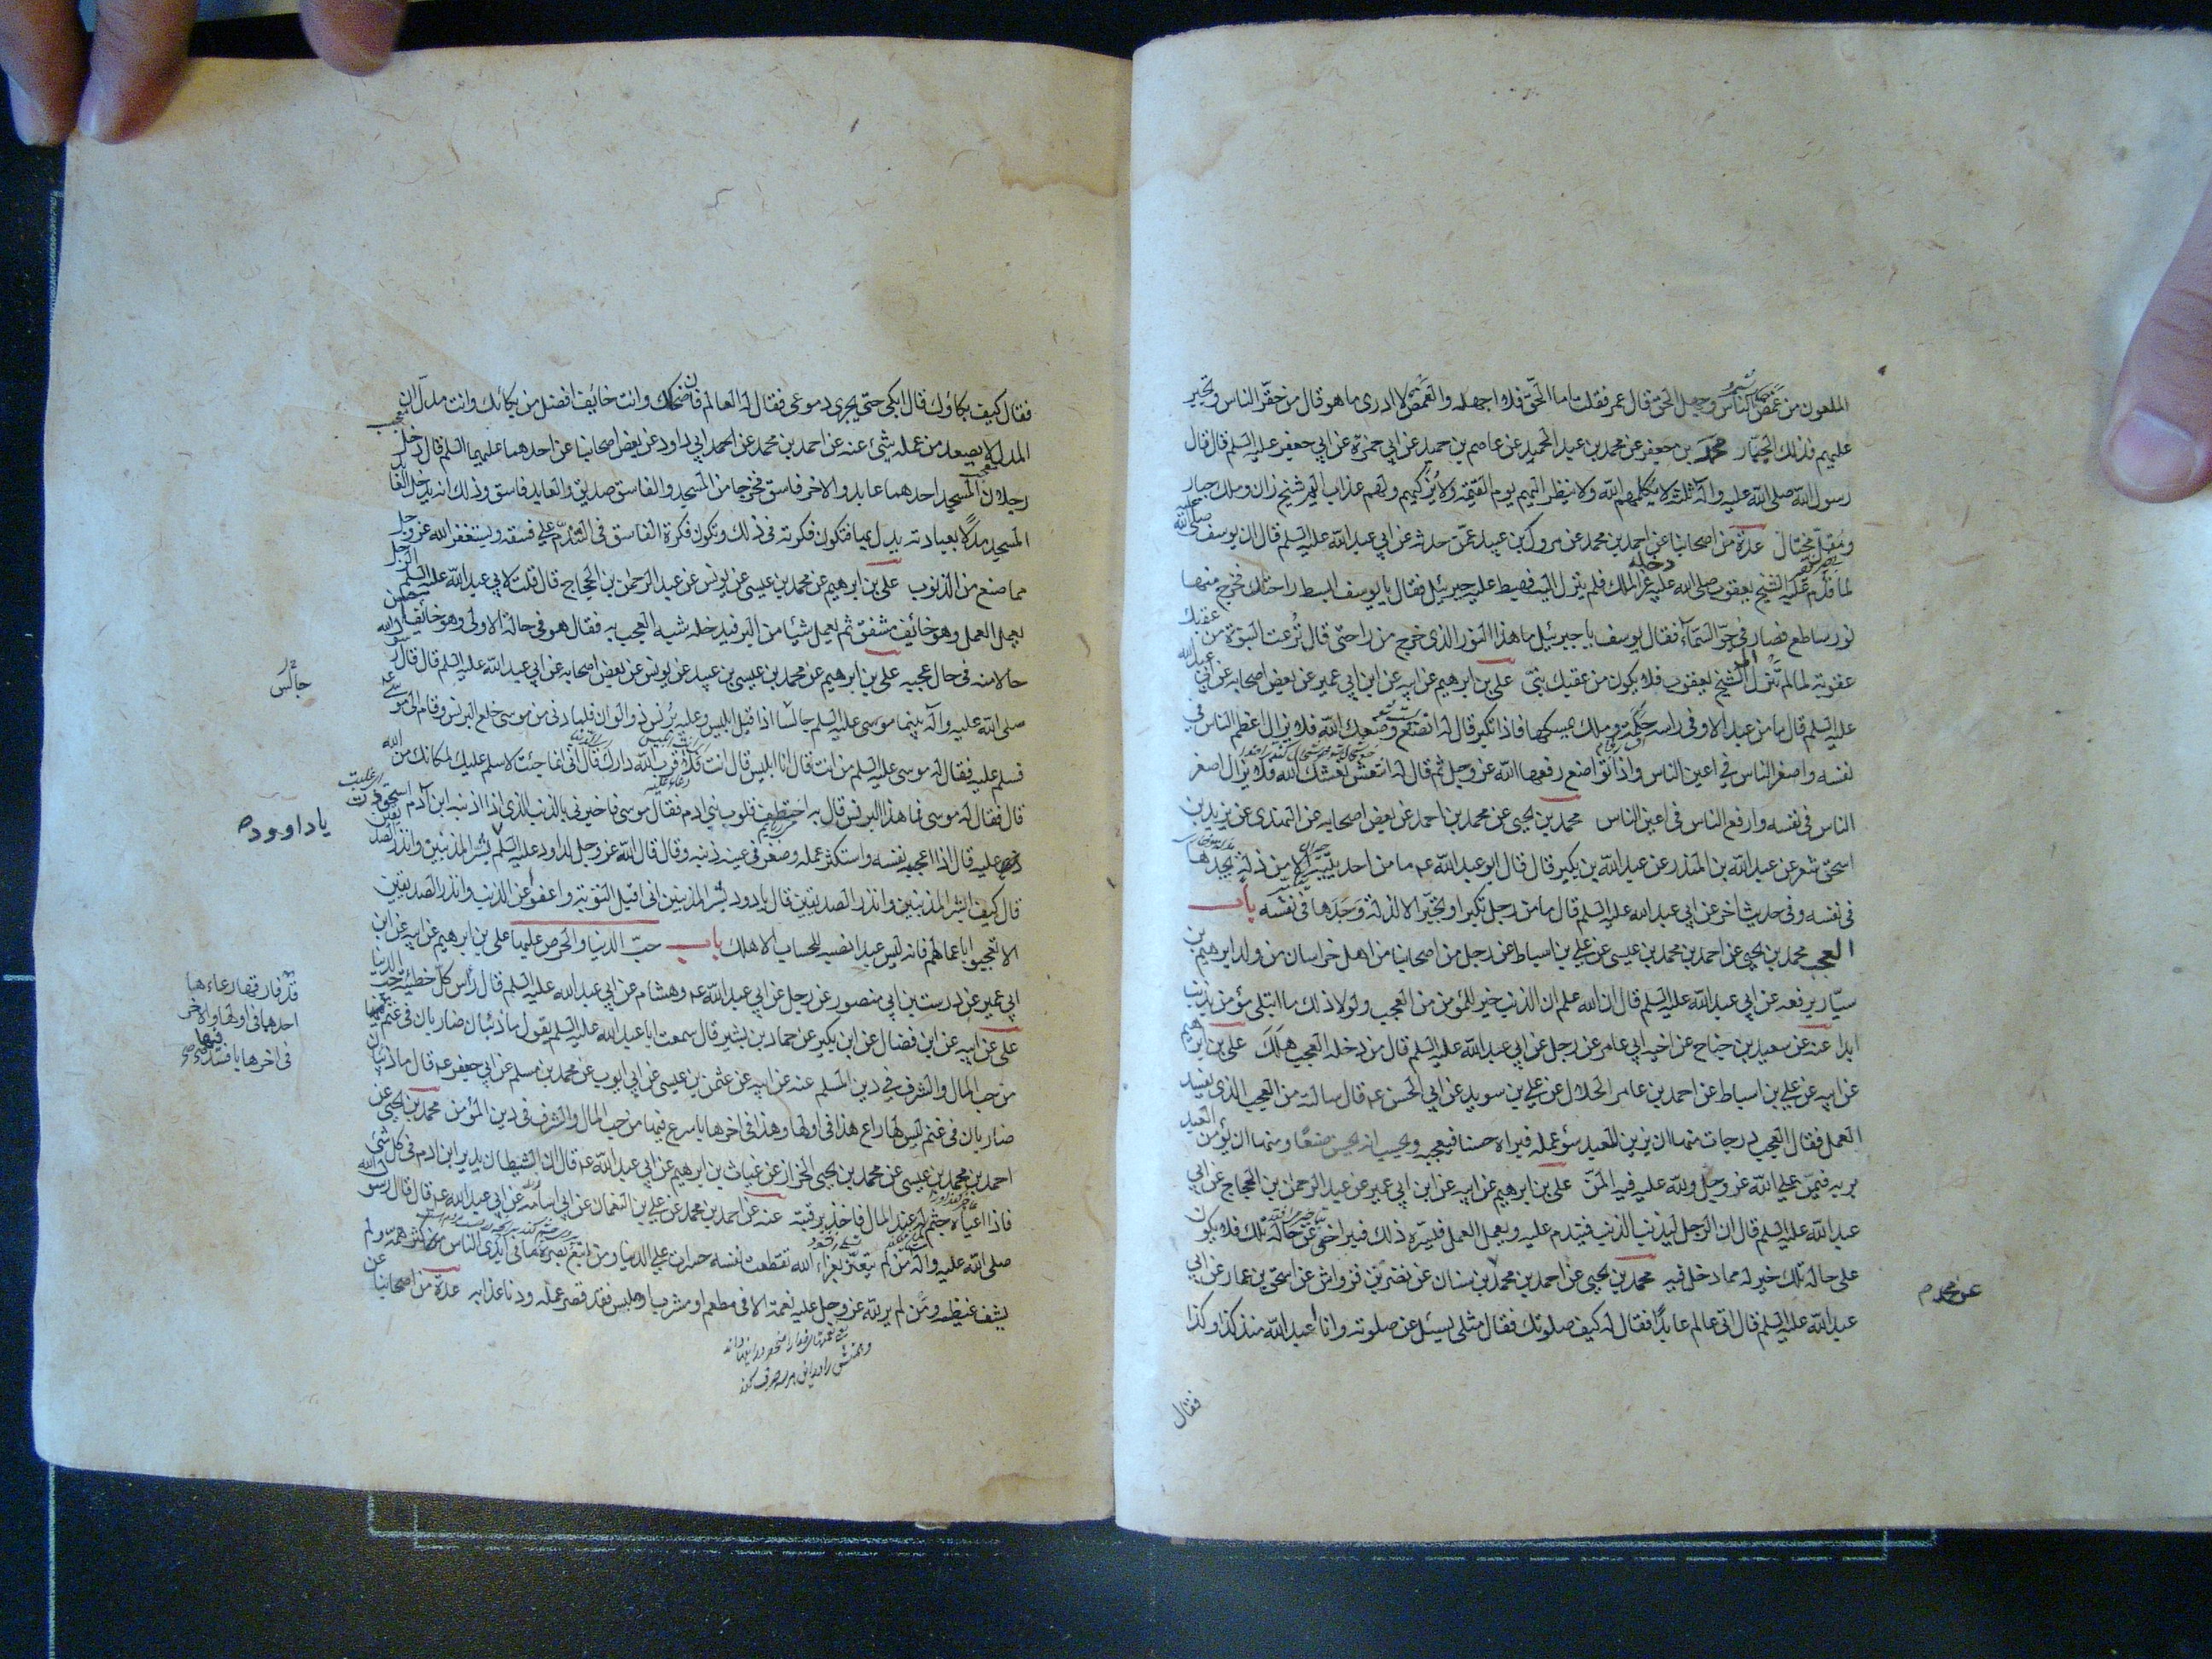 الملعون من غمص الناس وجهل الحق قال عمر فقلت اما الحق فلا اجهله والغمص لا ادرى ما هو قال من حقر الناس وتجبر
عليهم فذلك الجبار محمد بن جعفر عن محمد بن عبد الحميد عن عاصم بن حميد عن ابي حمزة عن ابي جعفر عليه السلم قال قال
رسول الله صلى الله عليه وآله ثلثة لا يكلمهم الله ولا ينظر اليهم يوم القيمة ولا يزكيهم ولهم عذاب اليم شيخ زان وملك جبار
ومقل مختال عدة من اصحابنا عن احمد بن محمد عن مروك بن عبيد عمن حدثه عن ابي عبد الله عليه السلم قال ان يوسف
لما قدم عليه الشيخ يعقوب صلى الله عليه دخله عز الملك فلم ينزل اليه فهبط عليه جبرئيل فقال يا يوسف ابسط راحتك فخرج منها
نور ساطع فصار في جو السماء فقال يوسف يا جبرئيل ما هذا النور الذى خرج من راحتى قال نزعت النبوة من عقبك
عقوبة لما لم تنزل الى الشيخ يعقوب فلا يكون من عقبك نبى على بن ابرهيم عن ابيه عن ابن ابي عمير عن بعض اصحابه عن ابي عبد الله
عليه السلم قال ما من عبد الا وفى راسه حكمة وملك يمسكها فاذا تكبر قال له اتضع وضعك الله فلا يزال اعظم الناس في
نفسه واصغر الناس في اعين الناس واذا تواضع رفعها الله عز وجل ثم قال له انتعش نعشك الله فلا يزال اصغر
الناس في نفسه وارفع الناس في اعين الناس محمد بن يحيى عن محمد بن احمد عن بعض اصحابه عن النهدى عن يزيد بن
اسحق شعر عن عبد الله بن المنذر عن عبد الله بن بكير قال قال ابو عبد الله عه ما من احد يتيه الا من ذلة يجدها
في نفسه وفى حديث اخر عن ابي عبد الله عليه السلم قال ما من رجل تكبر او تجبر الا لذلة وجدها في نفسه باب
العجب محمد بن يحيى عن احمد بن محمد بن عيسى عن على بن اسباط عن رجل من اصحابنا من اهل خراسان من ولد ابرهيم بن
سيار يرفعه عن ابي عبد الله عليه السلم قال ان الله علم ان الذنب خير للمؤمن من العجب ولولا ذلك ما ابتلى مؤمن بذنب
ابدا عنه عن سعيد بن جناح عن اخيه ابي عامر عن رجل عن ابي عبد الله عليه السلم قال من دخله العجب هلك على بن ابرهيم
عن ابيه عن على بن اسباط عن احمد بن عامر الحلال عن على بن سويد عن ابي الحسن عه قال سالته من العجب الذى يفسد
العمل فقال العجب درجات منها ان يزين للعبد سؤ عمله فيراه حسنا فيعجبه ويحسب انه يحسن صنعا ومنها ان يؤمن العبد
بربه فيمن على الله عز وجل ولله عليه فيه المن على بن ابرهيم عن ابيه عن ابن ابي عمير عن عبد الرحمن بن الحجاج عن ابي
عبد الله عليه السلم قال ان الرجل ليذنب الذنب فيندم عليه ويعمل العمل فيسره ذلك فيتراخى عن حاله تلك فلان يكون
على حاله تلك خير له مما دخل فيه محمد بن يحيى عن احمد بن محمد بن سنان عن نضر بن قرواش عن اسحق بن عمار عن ابي
عبد الله عليه السلم قال اتى عالم عابدا فقال له كيف صلوتك فقال مثلى يسئل عن صلوته وانا اعبد الله منذ كذا وكذا
فقال
عن محمد
فقال كيف بكاؤك قال ابكى حتى يجرى دموعى فقال له العالم فان ضحكك وانت خائف افضل من بكائك وانت مدل ان
المدل لا يصعد من عمله شيئ عنه عن احمد بن محمد عن احمد ابي داود عن بعض اصحابنا عن احدهما عليهما السلم قال دخل
رجلان المسجد احدهما عابد والاخر فاسق فخرجا من المسجد والفاسق صديق والعابد فاسق وذلك انه يدخل العابد
المسجد مدلا بعبادته يدل بها فتكون فكرته في ذلك وتكون فكرة الفاسق في التندم على فسقه ويستغفر الله عز وجل
مما صنع من الذنوب على بن ابرهيم عن محمد بن عيسى عن يونس عن عبد الرحمن بن الحجاج قال قلت لابي عبد الله عليه السلم الرجل
يعمل العمل وهو خائف مشفق ثم يعمل شيئا من البر فيدخله شبه العجب به فقال هو في حاله الاولى وهو خائف احسن
حالا منه في حال عجبه على بن ابرهيم عن محمد بن عيسى بن عبيد عن يونس عن بعض اصحابه عن ابي عبد الله عليه السلم قال قال رسول الله
صلى الله عليه وآله بينما موسى عليه السلم جالسا اذا قبل ابليس وعليه برنس ذو الوان فلما دنى من موسى خلع البرنس وقام الى موسى
فسلم عليه فقال له موسى عليه السلم من انت قال انا ابليس قال انت فلا قرب الله دارك قال انى انما جئت لاسلم عليك لمكانك من الله
قال فقال له موسى فما هذا البرنس قال به اختطف قلوب بنى ادم فقال موسى فاخبرنى بالذنب الذى اذا اذنبه ابن آدم استحوذت
عليه قال اذا اعجبته نفسه واستكثر عمله وصغر في عينه ذنبه وقال قال الله عز وجل لداود عليه السلم بشر المذنبين وانذر الصديقين
قال كيف ابشر المذنبين وانذر الصديقين قال يا داود بشر المذنبين انى اقبل التوبة واعفو عن الذنب وانذر الصديقين
الا تعجبوا باعمالهم فانه ليس عبد انصبه للحساب الا هلك باب حب الدنيا والحرص عليها على بن ابرهيم عن ابيه عن ابن
ابي عمير عن درست بن ابي منصور عن رجل عن ابي عبد الله عه وهشام عن ابي عبد الله عليه السلم قال رأس كل خطيئة حب الدنيا
على عن ابيه عن ابن فضال عن ابن بكير عن حماد بن بشير قال سمعت ابا عبد الله عليه السلم يقول ما ذئبان ضاريان في غنم
من حب المال والشرف في دين المسلم عنه عن ابيه عن عثمن بن عيسى عن ابي ايوب عن محمد بن مسلم عن ابي جعفر عه قال ما ذئبان
ضاريان في غنم ليس لها راع هذا في اولها وهذا في اخرها باسرع فيها من حب المال والشرف في دين المؤمن محمد بن يحيى عن
احمد بن محمد بن عيسى عن محمد بن يحيى الخزاز عن غياث بن ابرهيم عن ابي عبد الله عه قال ان الشيطان يدير ابن ادم في كل شئ
فاذا اعياه جثم له عند المال فاخذ برقبته عنه عن احمد بن محمد عن على بن النعمان عن ابي اسامة عن ابي عبد الله عه قال قال رسول الله
صلى الله عليه وآله من لم يتعز بعزاء الله تقطعت نفسه حسرات على الدنيا ومن اتبع بصره ما في ايدى الناس كثر همه ولم
يشف غيظه ومن لم ير لله عز وجل عليه نعمة الا في مطعم او مشرب او ملبس فقد قصر عمله ودنا عذابه عدة من اصحابنا عن
جالس
يا داوود
قد فارقها رعاءها
احدهما في اولها والاخر
في اخرها بافسد فيها